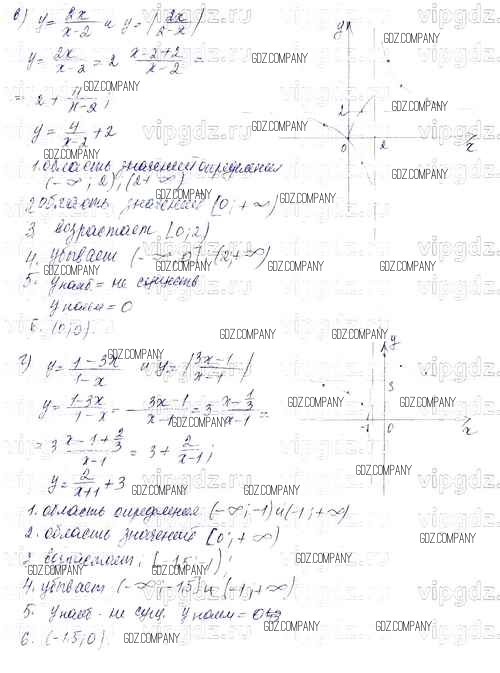 в) y = 2x/x-2 и y = |2x/2-x|
y = 2x/x-2 = 2 x-2+2/x-2 =
= 2 + 4/x-2;
y = 4/x-2 + 2
1. область значений определения
(-∞; 2), (2+∞)
2 область значений [0; +∞)
3 возрастает [0; 2)
4. убывает (-∞; 0], (2; +∞)
5. y наиб = не существ
y наим = 0
6. (0; 0).
г) y = 1-3x/1-x и y = |3x-1/x-1|
y = 1-3x/1-x = 3x-1/x-1 = 3 x-1/3/x-1 =
= 3 x-1+2/3/x-1 = 3 + 2/x-1;
y = 2/x+1 + 3
1. область определения (-∞; -1) и (-1; +∞)
2. область значений [0; +∞)
3 возрастает [-1,5; -1)
4. убывает (-∞; -1,5] и (-1; +∞)
5 y наиб - не сущ. y наим = 0
6. (-1,5; 0).
y
2
0
2
x
y
3
-1
0
x
vipgdz.ru
GDZ.COMPANY